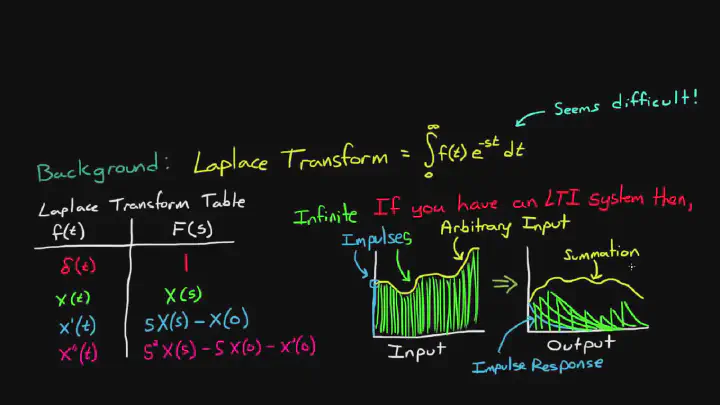 Seems difficult!
Background: Laplace Transform = ∫₀^∞ f(t) e^-st dt
Laplace Transform Table
f(t) F(s)
δ(t) 1
x(t) X(s)
x'(t) sX(s) - x(0)
x''(t) s²X(s) - sx(0) - x'(0)
If you have an LTI system then,
Infinite
Impulses
Arbitrary Input
Input
⇒
Summation
Output
Impulse Response